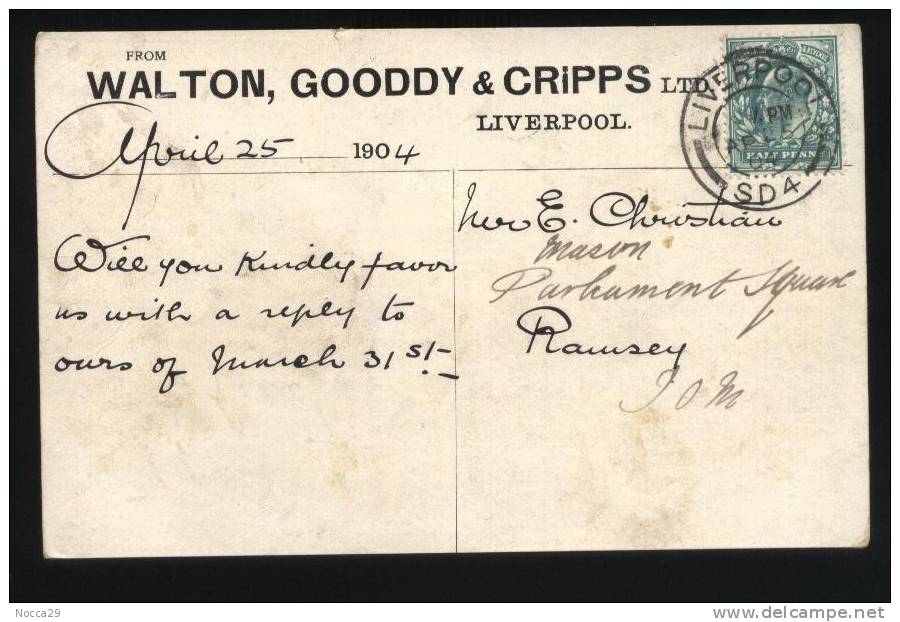 FROM
WALTON, GOODDY & CRIPPS LTD.
LIVERPOOL.
April 25 1904
LIVERPOOL
4 PM
AP
SD4
HALF PENNY
Will you kindly favor
us with a reply to
ours of March 31st
Mr E. Christian
Mason
Parliament Square
Ramsey
I O M
Nocca29
www.delcampe.net